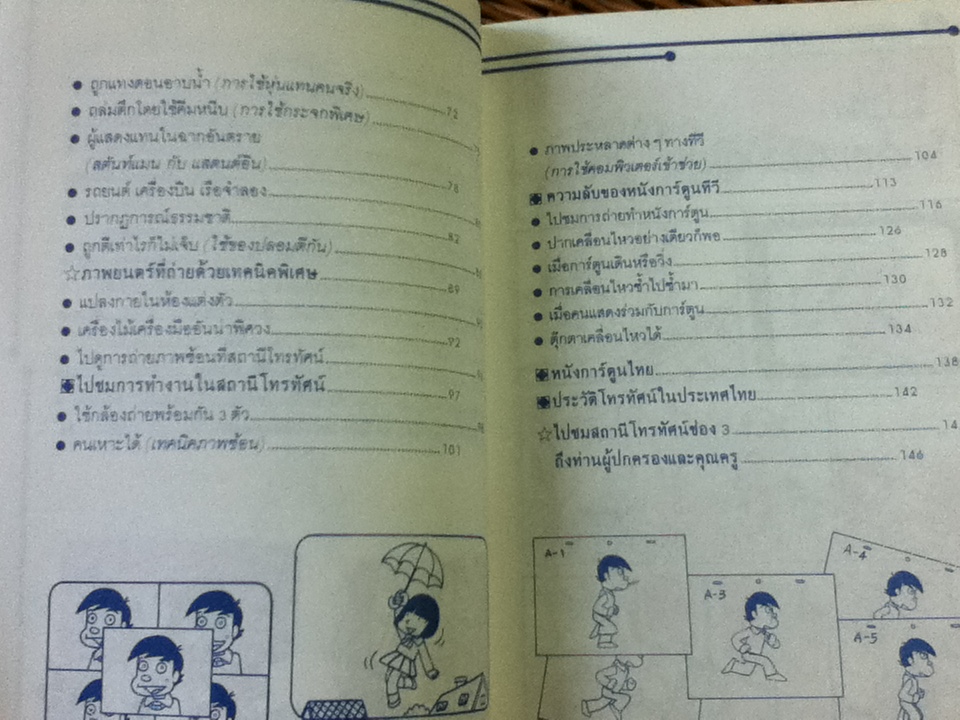 ● ถูกแทงตอนอาบน้ำ (การใช้หุ่นแทนคนจริง)
● ถล่มตึกโดยใช้คีมหนีบ (การใช้กระจกพิเศษ)
● ผู้แสดงแทนในฉากอันตราย
(สตันท์แมน กับ แสตนด์อิน) 78
● รถยนต์ เครื่องบิน เรือจำลอง
● ปรากฏการณ์ธรรมชาติ 82
● ถูกตีเท่าไรก็ไม่เจ็บ (ใช้ของปลอมตีกัน)
☆ ภาพยนตร์ที่ถ่ายด้วยเทคนิคพิเศษ 89
● แปลงกายในห้องแต่งตัว
● เครื่องไม้เครื่องมืออันน่าพิศวง 92
● ไปดูการถ่ายภาพซ้อนที่สถานีโทรทัศน์
ไปชมการทำงานในสถานีโทรทัศน์ 97
● ใช้กล้องถ่ายพร้อมกัน 3 ตัว
● คนเหาะได้ (เทคนิคภาพซ้อน) 101
● ภาพประหลาดต่าง ๆ ทางทีวี
(การใช้คอมพิวเตอร์เข้าช่วย) 104
ความลับของหนังการ์ตูนทีวี 113
● ไปชมการถ่ายทำหนังการ์ตูน 116
● ปากเคลื่อนไหวอย่างเดียวก็พอ 126
● เมื่อการ์ตูนเดินหรือวิ่ง 128
● การเคลื่อนไหวซ้ำไปซ้ำมา 130
● เมื่อคนแสดงร่วมกับการ์ตูน 132
● ตุ๊กตาเคลื่อนไหวได้ 134
หนังการ์ตูนไทย 138
ประวัติโทรทัศน์ในประเทศไทย 142
☆ ไปชมสถานีโทรทัศน์ช่อง 3 14
ถึงท่านผู้ปกครองและคุณครู 146
A-1
A-3
A-4
A-5